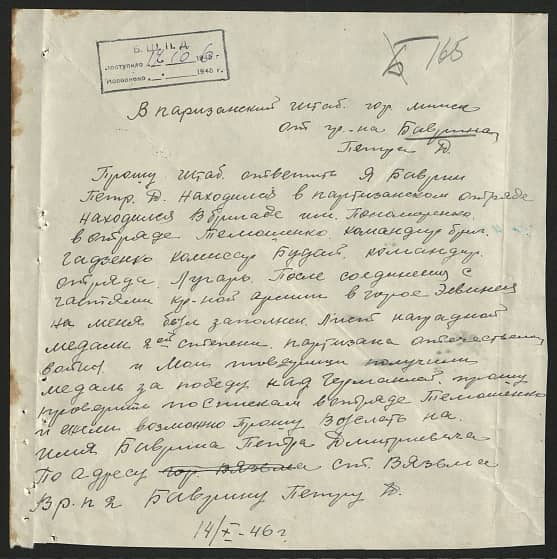 Б. Ш. П. Д.
Поступило 1946 г.
Исполнено 1946 г.
Б 165
В паризанский штаб. гор. минск
от гр-на Баврина
Петра Д.
Прошу штаб. ответить Я Баврин
Петр. Д. находился в партизанском отряде
находился В бригаде им. Пономоренко.
в отряде Темошенко. командир бриг.
Гадзенко комиссар Будай, командир.
отряда. Лугарь. После соединения с
частями кр-ной армии в городе
на меня был заполнен. Лист наградной
медали 2ой степени. партизана отечествен
войны и Мои товарищи получили
медаль за победу над Германией. прошу
проверить по спискам в отряде Темошенко
и если возможно Прошу Выслать на.
имя Баврина Петра Дмитриевича
По адресу гор. Вязьма ст. Вязьма
Баврину Петру Д.
14/X-46 г.